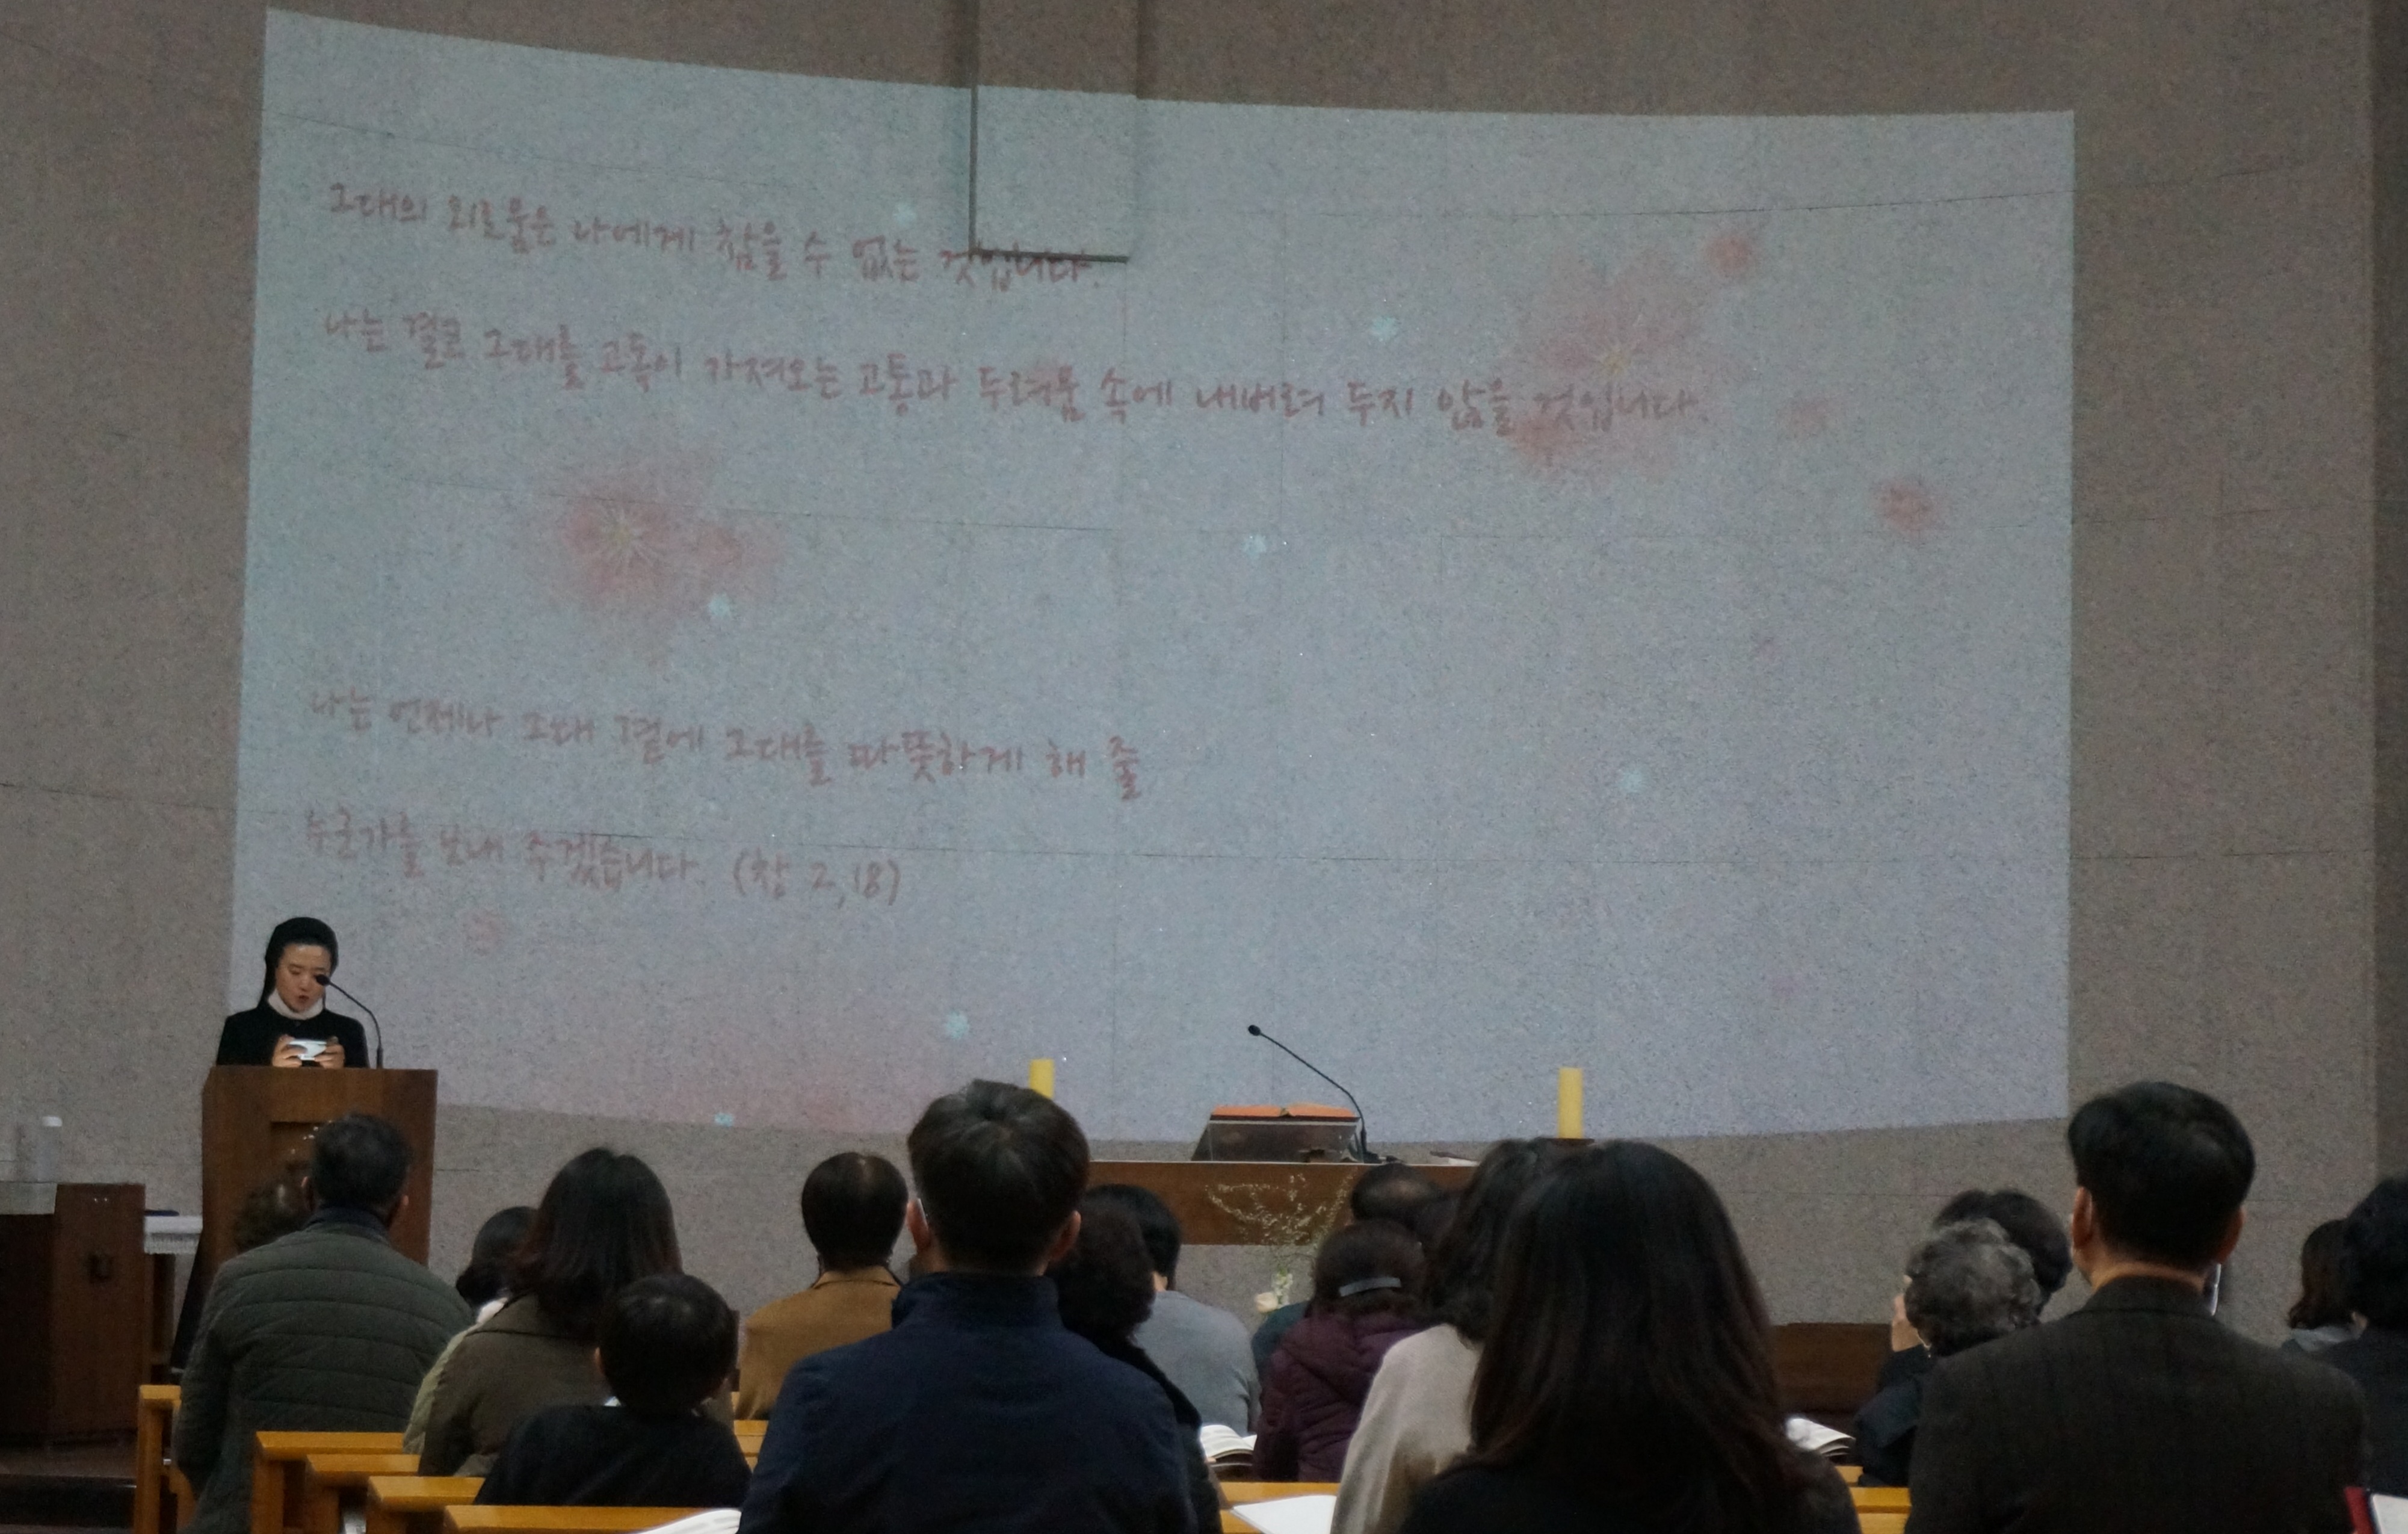 그대의 외로움은 나에게 참을 수 없는 것입니다.
나는 결코 그대를 고독이 가져오는 고통과 두려움 속에 내버려 두지 않을 것입니다.
나는 언제나 그대 곁에 그대를 따뜻하게 해 줄
누군가를 보내 주겠습니다. (창 2,18)